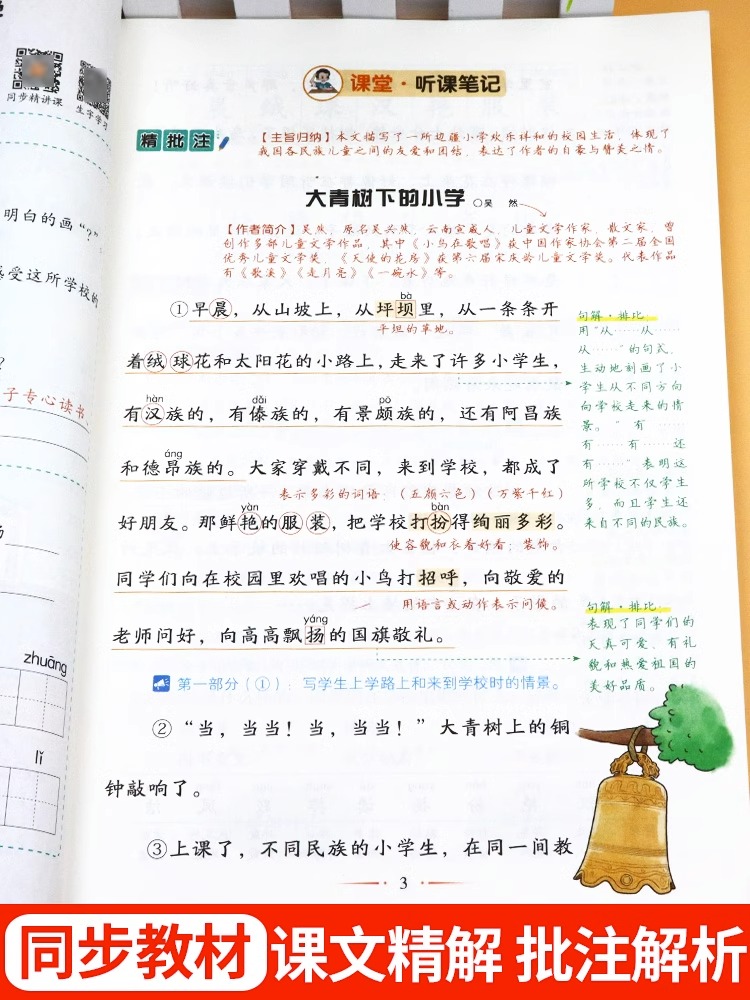 同步精讲课
生字学习
明白的画“?”
感受这所学校的
子专心读书。
zhuāng
lǐ
课堂·听课笔记
精批注
【主旨归纳】本文描写了一所边疆小学欢乐祥和的校园生活，体现了
我国各民族儿童之间的友爱和团结，表达了作者的自豪与赞美之情。
大青树下的小学 ○吴 然
【作者简介】吴然，原名吴兴然，云南宣威人，儿童文学作家，散文家，曾
创作多部儿童文学作品，其中《小鸟在歌唱》获中国作家协会第二届全国
优秀儿童文学奖，《天使的花房》获第六届宋庆龄儿童文学奖。代表作品
有《歌溪》《走月亮》《一碗水》等。
bà
①早晨，从山坡上，从坪坝里，从一条条开
平坦的草地。
着绒球花和太阳花的小路上，走来了许多小学生，
hàn dǎi pō
有汉族的，有傣族的，有景颇族的，还有阿昌族
áng
和德昂族的。大家穿戴不同，来到学校，都成了
表示多彩的词语：（五颜六色）（万紫千红）
yàn bàn
好朋友。那鲜艳的服装，把学校打扮得绚丽多彩。
使容貌和衣着好看；装饰。
同学们向在校园里欢唱的小鸟打招呼，向敬爱的
用语言或动作表示问候。
yáng
老师问好，向高高飘扬的国旗敬礼。
第一部分（①）：写学生上学路上和来到学校时的情景。
②“当，当当！当，当当！”大青树上的铜
钟敲响了。
③上课了，不同民族的小学生，在同一间教
句解·排比：
用“从……从……
从……”的句式，
生动地刻画了小
学生从不同方向
向学校走来的情
景。“有……
有……有……还
有……”表明这
所学校不仅学生
多，而且学生还
来自不同的民族。
句解·排比：
表现了同学们的
天真可爱、有礼
貌和热爱祖国的
美好品质。
3
同步教材 课文精解 批注解析